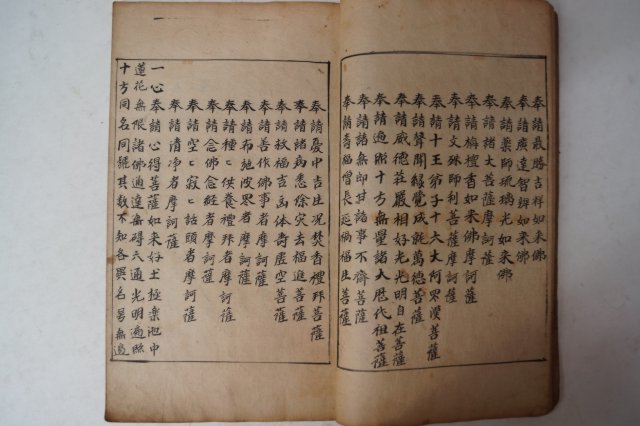 奉請最勝吉祥如來佛
奉請廣達智辨如來佛
奉請藥師琉璃光如來佛
奉請諸大菩薩摩訶薩
奉請栴檀香如來佛摩訶薩
奉請文殊師利菩薩摩訶薩
奉請十王弟子十六大阿羅漢菩薩
奉請聲聞緣覺成就萬德菩薩
奉請威德莊嚴相好光明自在菩薩
奉請過術十方無量諸大歷代祖菩薩
奉請諸無即甘話事不齋菩薩
奉請青福增長延禍福生菩薩
奉請慶中吉生况焚香禮拜菩薩
奉請諸病悉除灾去福进菩薩
奉請救福吉由体壽虛空菩薩
奉請善作佛事者摩訶薩
奉請布施改界者摩訶薩
奉請種〻供養禮拜者摩訶薩
奉請念佛念經者摩訶薩
奉請空〻寂〻話頭者摩訶薩
奉請清净者摩訶薩
一心奉請心得菩薩如來好土極樂池中
蓮花無限諸佛通達無碍六通光明遍照
十方同名同號其数不知各異名号無邊